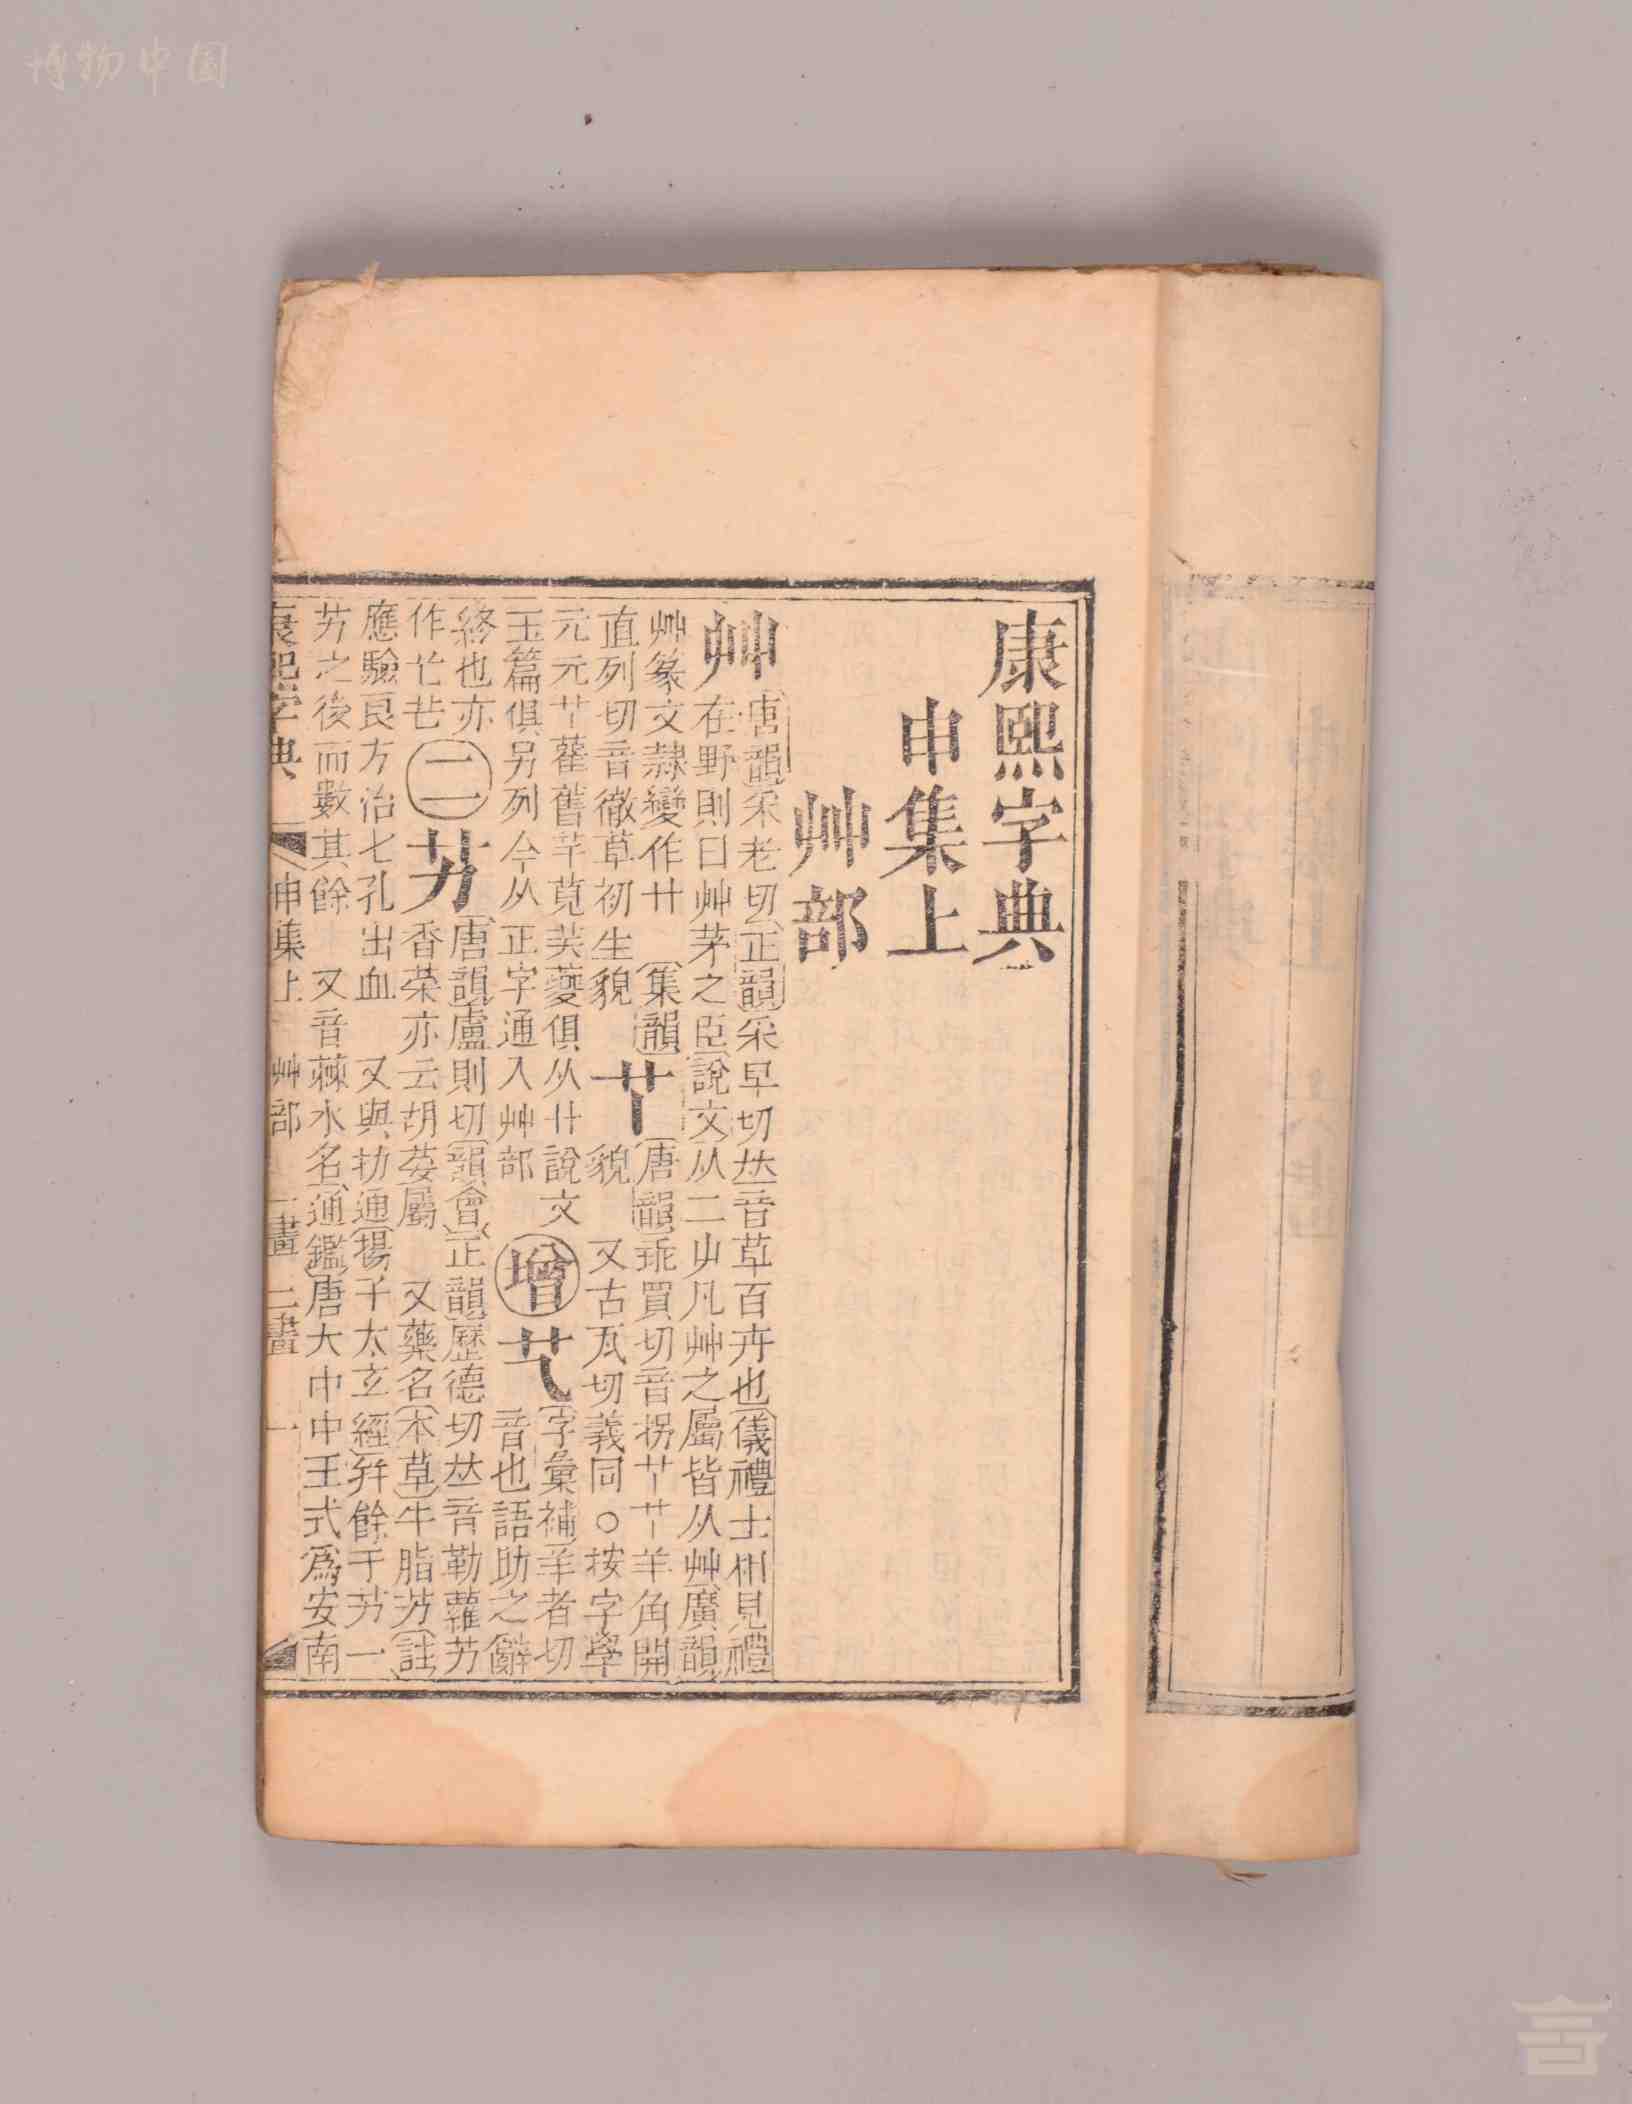 博物中国
康熙字典
申集上
艸部
艸
唐韻采老切正韻采早切𠀤音草百卉也儀禮士相見禮
在野則曰艸茅之臣說文从二屮凡艸之屬皆从艸廣韻
艸篆文隸變作廾 集韻
直列切音徹草初生貌
𦫳
唐韻乖買切音拐𦫳𦫳羊角開
貌 又古瓦切義同○按字學
元元𦫳雚舊芉莧芙蘷俱从卝說文
玉篇俱另列今从正字通入艸部
增
字彙補羊者切
音也語助之辭
終也亦
作亡
二
艻
唐韻盧則切韻會正韻歷德切𠀤音勒蘿艻
香菜亦云胡荽屬 又藥名本草牛脂艻註
應驗良方治七孔出血 又與扐通揚子太玄經幷餘于艻一
艻之後而數其餘 又音棘水名通鑑唐大中中王式爲安南
康熙字典 申集上 艸部 一畫二畫 一